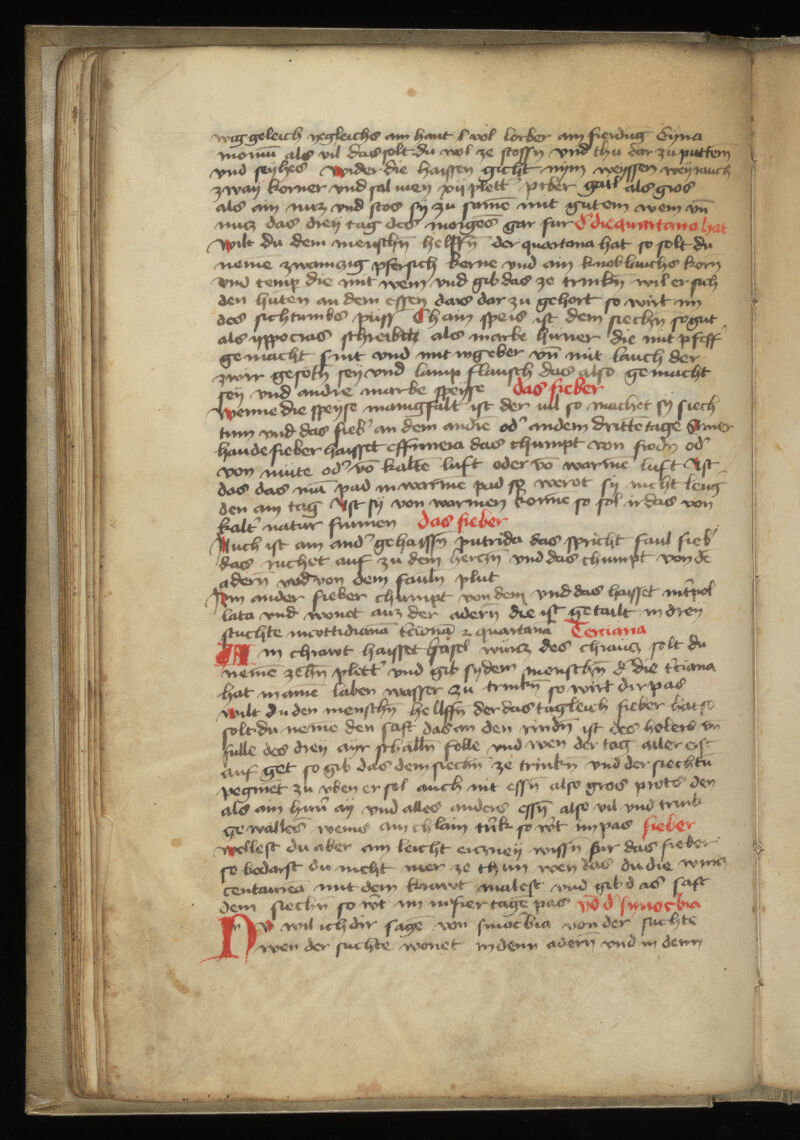 wig geleich yegleichs ain hant vol lorber ain fierdug Cyna
momū als vil das solt du wol ze stossn vnd thu dar zu puttern
vnd seyhes wider die haissen gicht nym weyssen weyrauch
zway korner vnd sal men xij plett piber gutt als gros
als ain nuz vnd stos sy zu same mit gutem wein vn̄
nuz das drey tag des morgens gar fur d' die quartana hat
wilt du dem menschn̄ helffn̄ der quartana hat so solt du
neme zwainzig pfersich kerne vnd ain knoblauchs korn
vnd temp die mit wein vnd gib das ze trinkn̄ wil er sich
den huten an dem essen daws dar zu gehort so wirt im
des sichtumbs puss Chain speis ist dem siechn̄ so gut
als yppocras schreibt als marbe huner die mit pfeff
gemacht sint vnd mit ingeber vn̄ mit lauch der
zwir gesotn̄ sey vnd lamp flaisch das also gemacht
sey vnd andre marbe speyse das fieber
wenne die speyse manigfalt ist der vil so machet sy siech
tum vnd das fieb' an dem andre od' an dem dritte tage Ainer
hande fieber haisset effimera das chumpt von frodn̄ od'
von mute od' vō kalte luft oder vō warme luft Ist
das das mā pad in warme pad so werot sy nicht leng
den ain tag Ist sy von warmen kome so sol ir das von
kalt' natur frumen das fieber
Auch ist ain and' gehaissn̄ putrida das spricht faul fieb'
das ruchet auf zu dem herczn̄ vnd das chumpt von dē
adern vnd von dem fauln plut
Ain ander fieber chumpt von dem vnd das haisset int'pol
lata vnd wonet auz der adern die ist getailt in drey
suchte incottidiana t'ciana z quartana Terciana
Ain chrawt haisset Gasel wurz des chrauz solt du
neme zehn̄ plett' vnd gib sy dem menschn̄ d' die t'ciana
hat in aine laben wasser zu trinkn̄ so wirt dir pas
wilt du den menschn̄ hellffn̄ der das tagleich fieber hat so
solt du neme den saft das an den rindn̄ ist des holers vn̄
fulle des drey ayr schalln̄ folle vnd wen der tag aller erst
auf get so gib das dem siechn̄ ze trinkn̄ vnd der siechtū
peginet zu vben er sol auch nit essn̄ also gros prots den
als ain hun' ay vnd alles anders essn̄ also vil vnd trink
gewalles weins ain chlain tr̄k so w't im pas fieber
wellest du aber ain leicht erczney wissn̄ fur das fieber
so bedarst du nicht mer ze thun wen das du die wurz
centaurea mit dem krawt malest vnd gib d as saft
dem siechn̄ so w't im in fier tage pas vō d' sinochia
Nu wil ich dir sage von sinochia von der suchte
wen der suchte wonet in denn adern vnd in denn